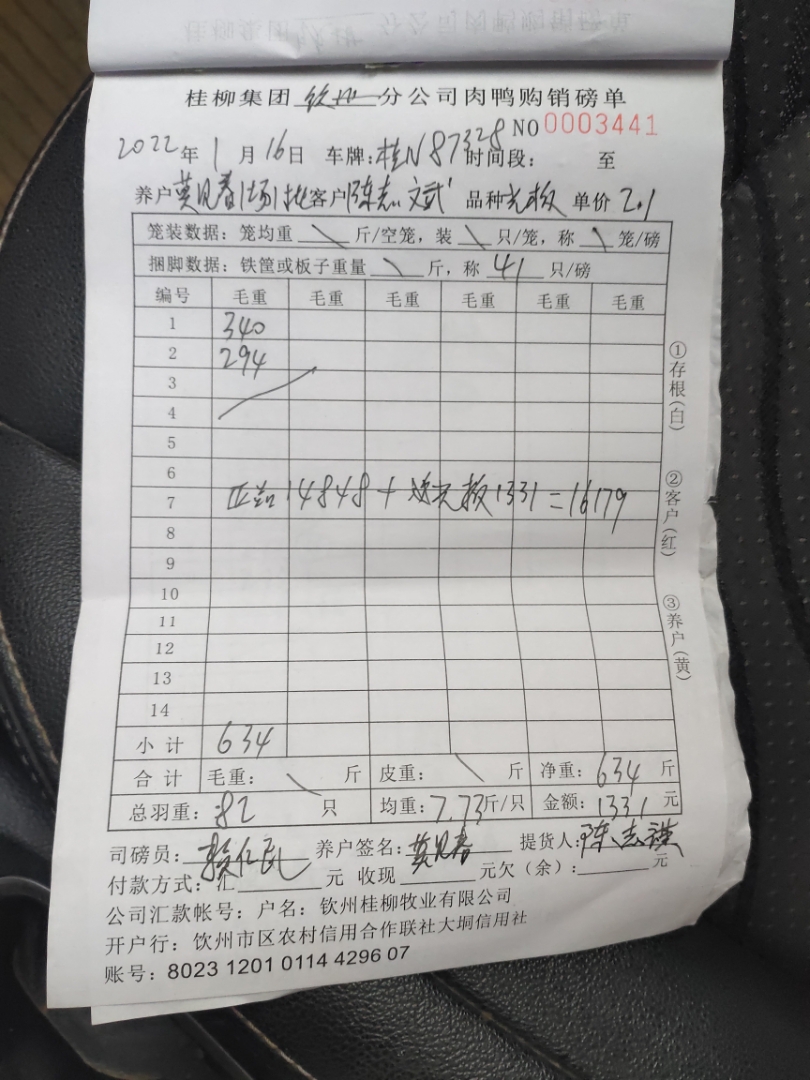 桂柳集团 钦州 分公司肉鸭购销磅单
NO 0003441
2022年 1月 16日 车牌:桂N87328 时间段: 至
养户 莫见春 客户 陈志 品种 光板 单价 2.1
笼装数据:笼均重 \ 斤/空笼,装 \ 只/笼,称 \ 笼/磅
捆脚数据:铁筐或板子重量 \ 斤,称 41 只/磅
编号 毛重 毛重 毛重 毛重 毛重 毛重
1 340
2 294
3
4
5
6
7 14848 + 光板1331 = 16179
8
9
10
11
12
13
14
小计 634
合计 毛重: \ 斤 皮重: \ 斤 净重: 634 斤
总羽重: 82 只 均重: 7.73 斤/只 金额: 1331 元
司磅员: 养户签名: 莫见春 提货人: 陈志
付款方式:汇 元 收现 元欠(余): 元
公司汇款帐号:户名:钦州桂柳牧业有限公司
开户行:饮州市区农村信用合作联社大垌信用社
账号:8023 1201 0114 4296 07
①存根(白)
②客户(红)
③养户(黄)